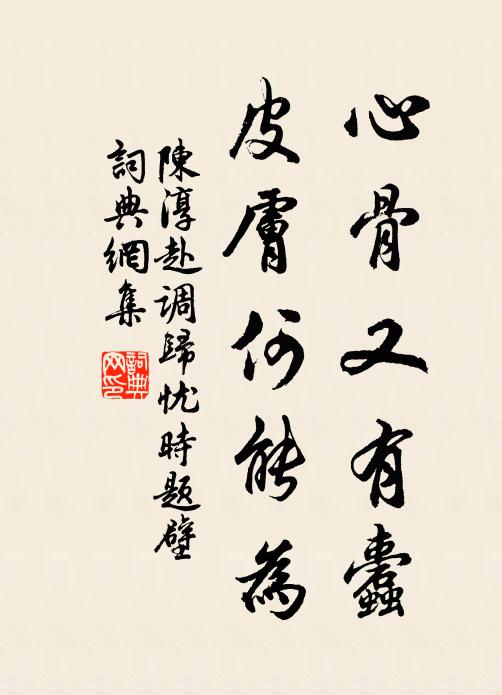 心骨又有蠹
皮膚何能為
陳淳赴調歸忧時題壁
詞典網集
詞典網印